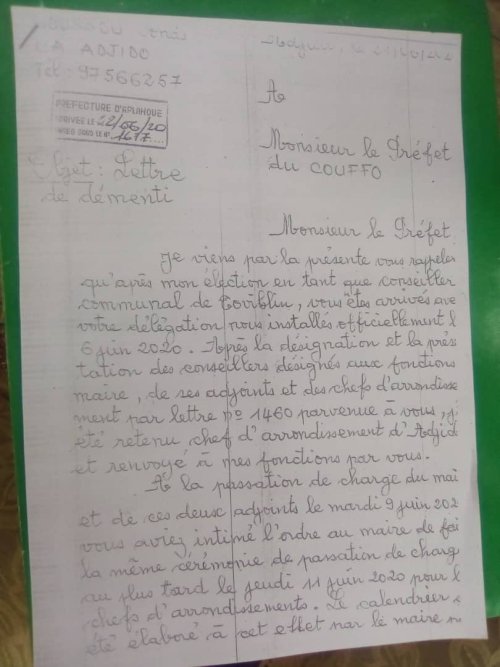 CA ADJIDO
Tél: 97566257
Adjido, le
PREFECTURE D'APLAHOUE
ARRIVEE LE 22/06/20
SOUS LE N° 1677
A
Monsieur le Préfet
du COUFFO
Objet: Lettre
de démenti
Monsieur le Préfet.
Je viens par la présente vous rappeler
qu'après mon élection en tant que conseiller
communal de Toviklin, vous êtes arrivés ave
votre délégation nous installés officiellement l
6 juin 2020. Après la désignation et la prés
tation des conseillers désignés aux fonctions
maire, de ses adjoints et des chefs d'arrondisse
ment par lettre n° 1460 parvenue à vous, j'
été retenu chef d'arrondissement d'Adjid
et renvoyé à mes fonctions par vous.
A la passation de charge du mai
et de ces deux adjoints le mardi 9 juin 202
vous aviez intimé l'ordre au maire de fai
la même cérémonie de passation de charg
au plus tard le jeudi 11 juin 2020 pour l
chefs d'arrondissements. Le calendrier
été élaboré à cet effet par le maire